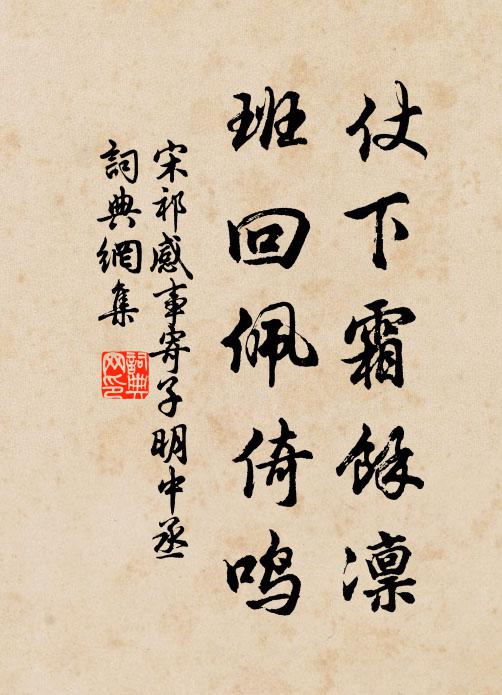 仗下霜餘凛
班回佩倚鸣
宋祁感事寄子明中丞
詞典網集
詞典网印